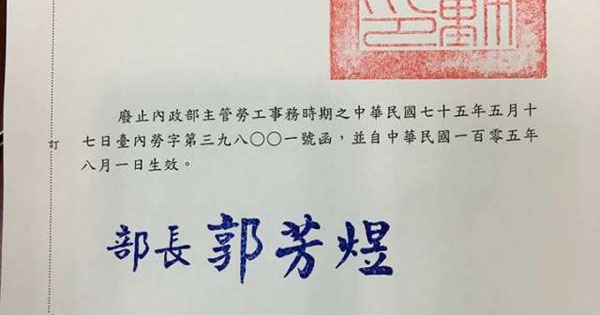 廢止內政部主管勞工事務時期之中華民國七十五年五月十
七日臺內勞字第三九八〇〇一號函，並自中華民國一百零五年
八月一日生效。
訂
部長 郭芳煜